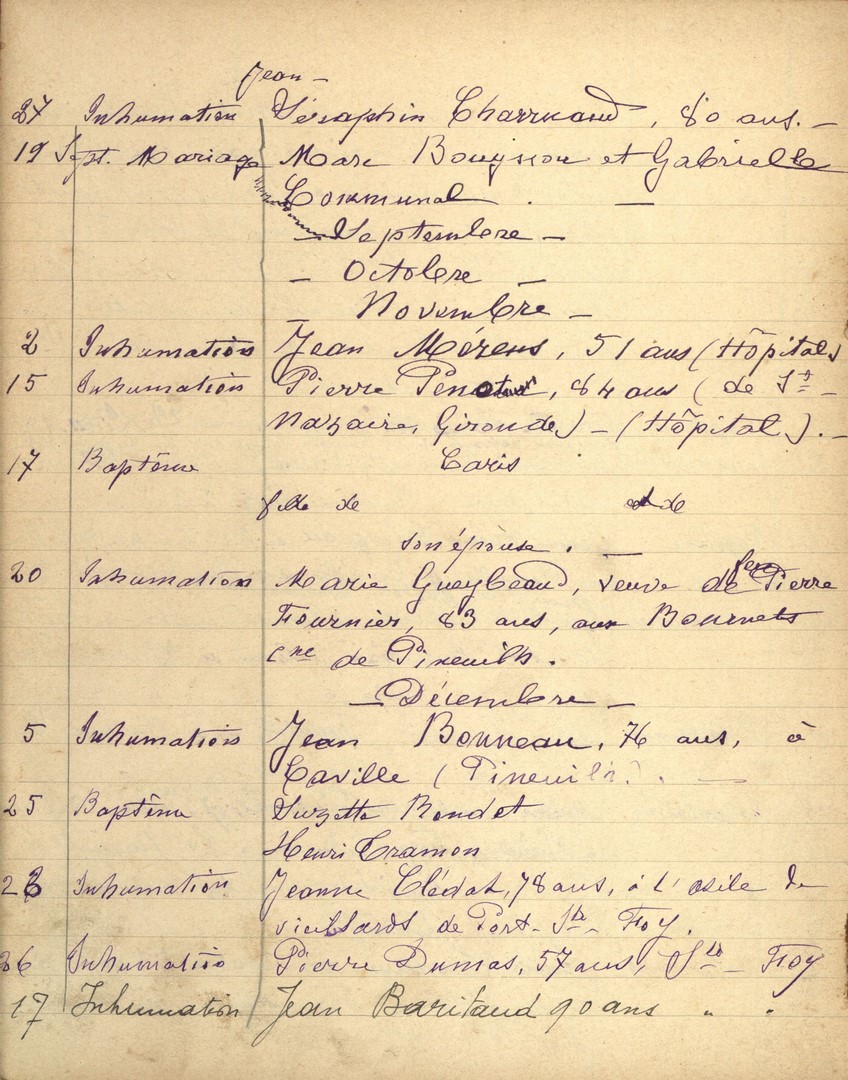 Jean -
27 Inhumation Séraphin Charruaud, 80 ans. -
19 Sept. Mariage Marc Bouysson et Gabrielle
Communal . -
- Septembre -
- Octobre -
- Novembre -
2 Inhumation Jean Mérens, 51 ans (Hôpital)
15 Inhumation Pierre 84 ans (de St -
Nazaire, Gironde) - (Hôpital). -
17 Baptême Caris
fille de et de
son épouse. -
20 Inhumation Marie Gueybeaud, veuve de feu Pierre
Fournier, 83 ans, aux Bournets
Cne de Pineuilh.
- Décembre -
5 Inhumation Jean Bonneau, 76 ans, à
Caville (Pineuilh). -
25 Baptême Suzette Rondet
Henri Cramon
Inhumation Jeanne Clédat, 78 ans, à l'asile de
vieillards de Port-Ste-Foy.
26 Inhumation Pierre Dumas, 57 ans, Ste - Foy
17 Inhumation Jean Baritaud 90 ans " "